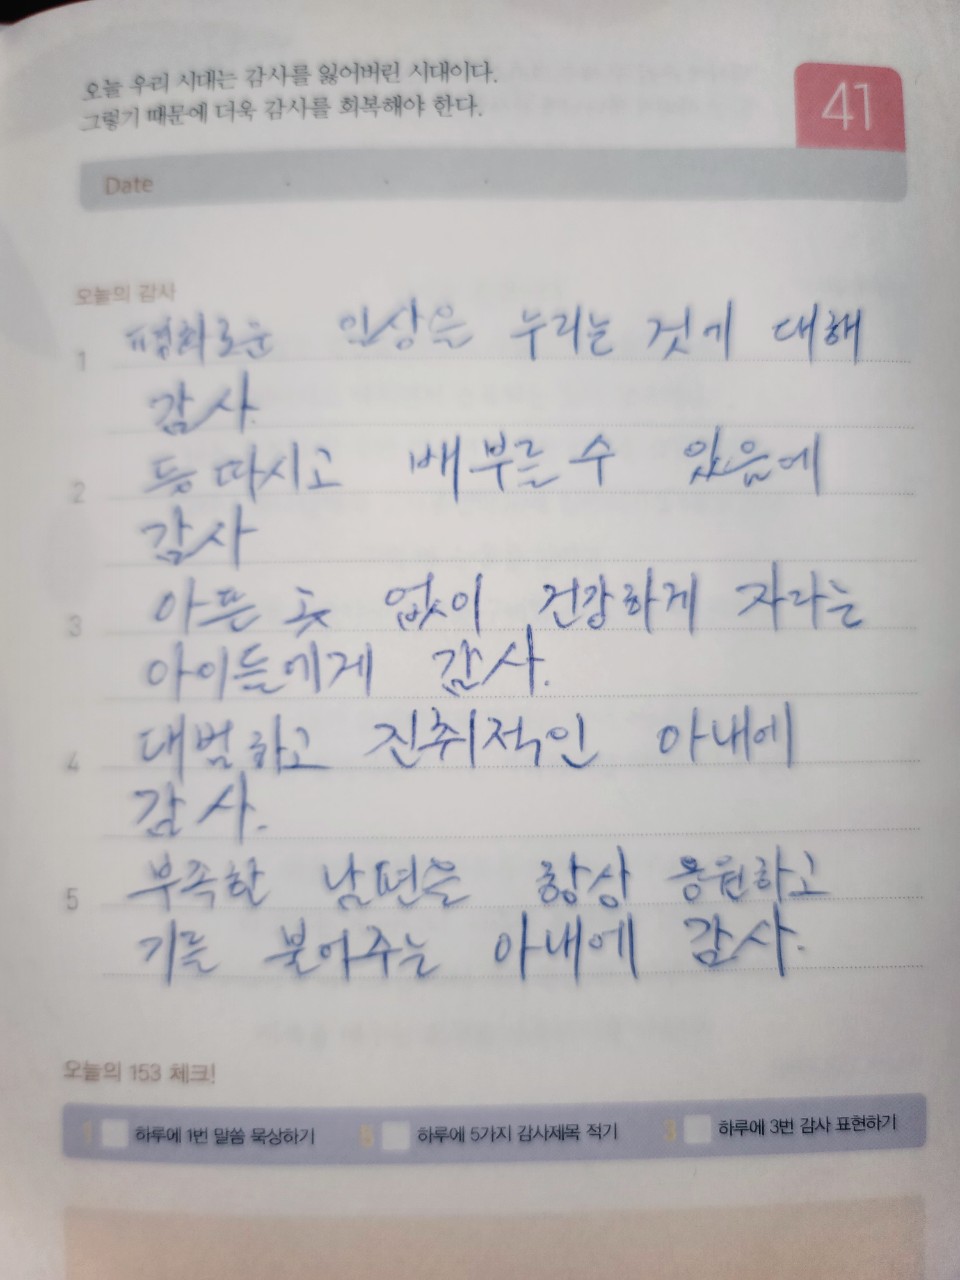 오늘 우리 시대는 감사를 잃어버린 시대이다.
그렇기 때문에 더욱 감사를 회복해야 한다.
41
Date
오늘의 감사
1 평화로운 일상을 누리는 것에 대해
감사.
2 등 따시고 배부를 수 있음에
감사
3 아픈 곳 없이 건강하게 자라는
아이들에게 감사.
4 대범하고 진취적인 아내에
감사.
5 부족한 남편을 항상 응원하고
기를 불어주는 아내에 감사.
오늘의 153 체크!
1 하루에 1번 말씀 묵상하기 5 하루에 5가지 감사제목 적기 3 하루에 3번 감사 표현하기